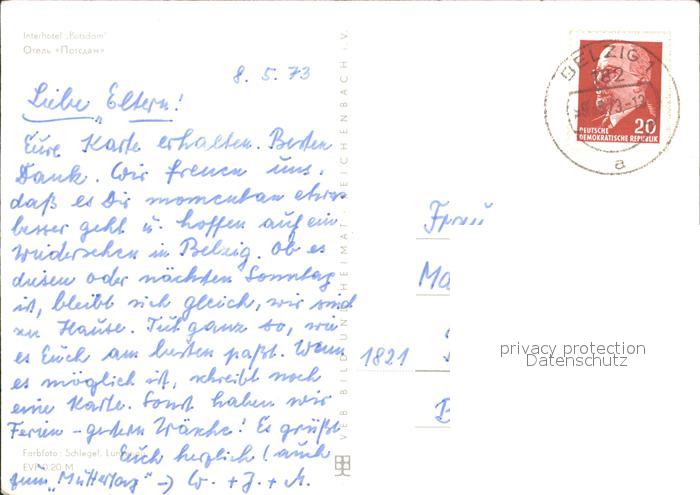 Interhotel „Potsdam"
Отель «Потсдам»
8. 5. 73
Liebe Eltern!
Eure Karte erhalten. Besten
Dank. Wir freuen uns,
daß es Dir momentan etwas
besser geht u. hoffen auf ein
Wiedersehen in Belzig. Ob es
diesen oder nächsten Sonntag
ist, bleibt sich gleich, wir sind
zu Hause. Tut ganz so, wie
es Euch am besten paßt. Wenn
es möglich ist, schreibt noch
eine Karte. Sonst haben wir
Ferien - gestern Wäsche! Es grüßt
Euch herzlich (auch
zum „Muttertag" →) W. + J. + A.
Farbfoto: Schlegel,
EVP 0.20 M
VEB BILD UND HEIMAT REICHENBACH i. V.
BELZIG 1
182
a
20
DEUTSCHE
DEMOKRATISCHE REPUBLIK
Frau
Ma
1821
B
privacy protection
Datenschutz